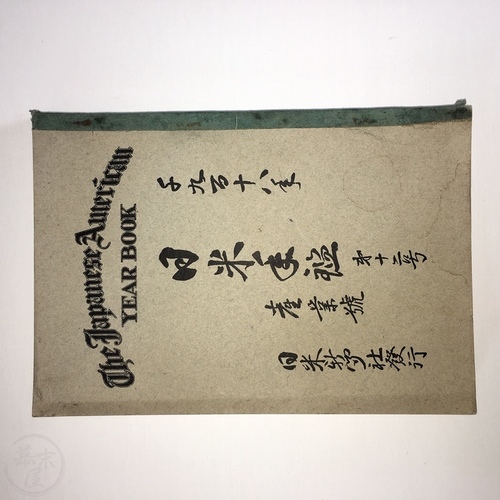 The Japanese American
YEAR BOOK
千九百十八年
日米年鑑 第十二号
産業號
日米新聞社發行